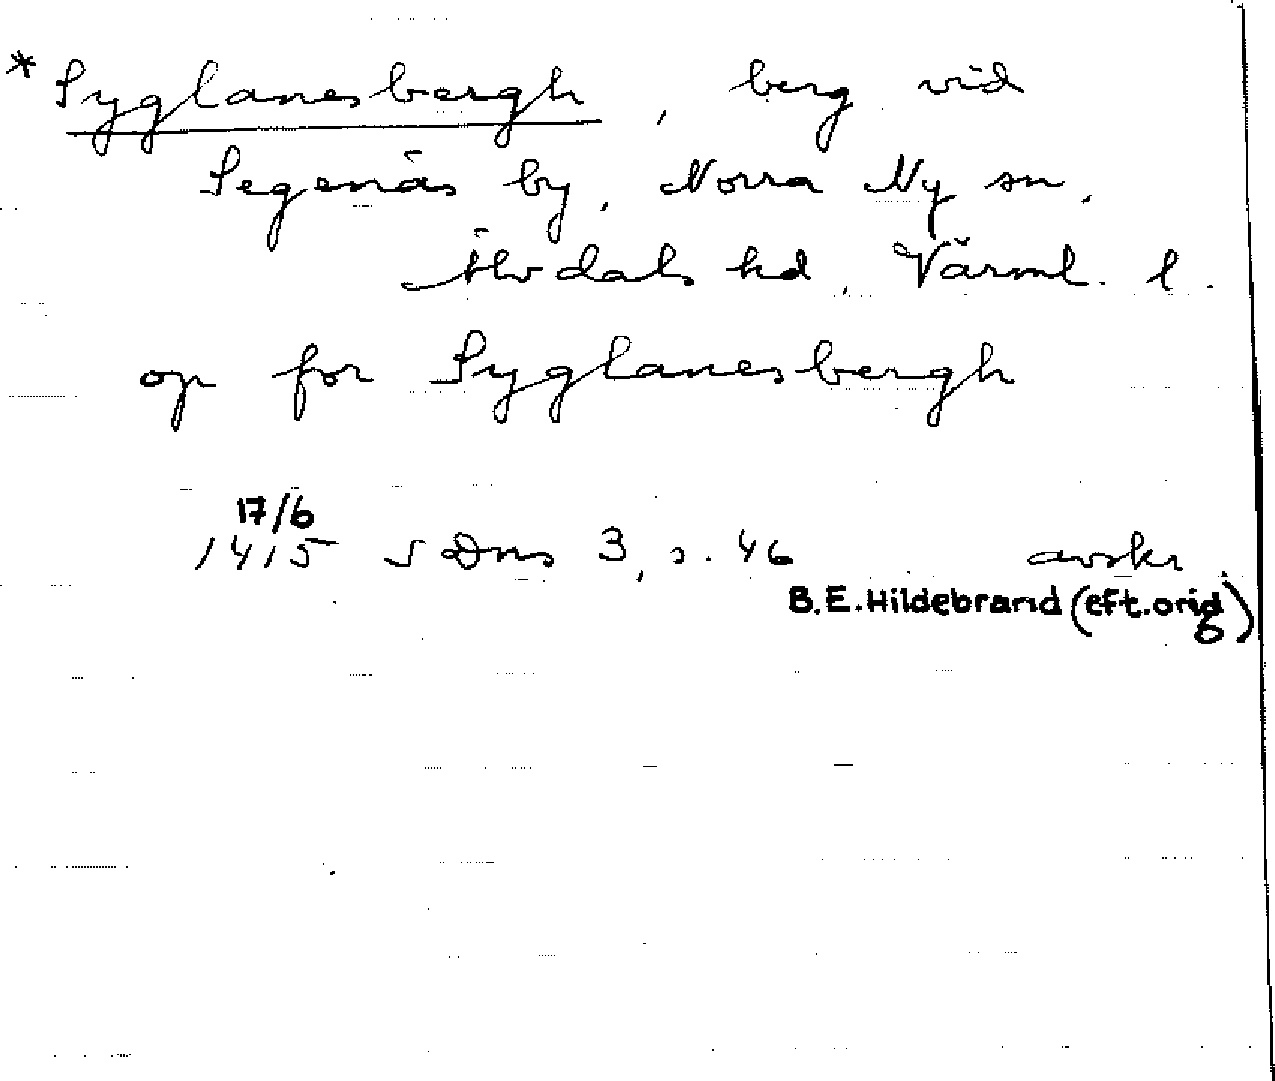 * Syglanesbergh, berg vid
Segenäs by, Norra Ny sn,
Älvdals hd, Värml. l.
op for Syglanesbergh
17/6
1415 SDns 3, s. 46 avskr.
B.E. Hildebrand (eft. orig)